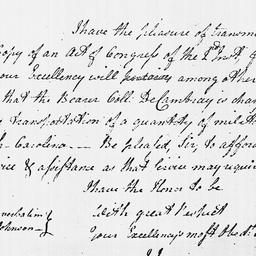 I have the pleasure of transm
Copy of an Act of Congress of the 2d Inst.
our Excellency will among other
that the Bearer Coll: DeCambray is char
transportation of a quantity of milit
h. Carolina. — Be pleased, Sir, to afford
ice & assistance as that service may requir
I have the Honor to be
With great respect
Your Excellency's most Obdt.
Johnson